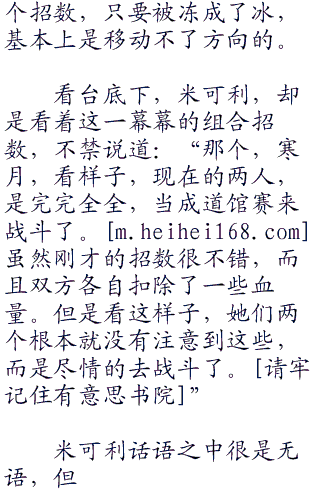 个招数，只要被冻成了冰，
基本上是移动不了方向的。
看台底下，米可利，却
是看着这一幕幕的组合招
数，不禁说道：“那个，寒
月，看样子，现在的两人，
是完完全全，当成道馆赛来
战斗了。[m.heihei168.com]
虽然刚才的招数很不错，而
且双方各自扣除了一些血
量。但是看这样子，她们两
个根本就没有注意到这些，
而是尽情的去战斗了。[请牢
记住有意思书院]”
米可利话语之中很是无
语，但